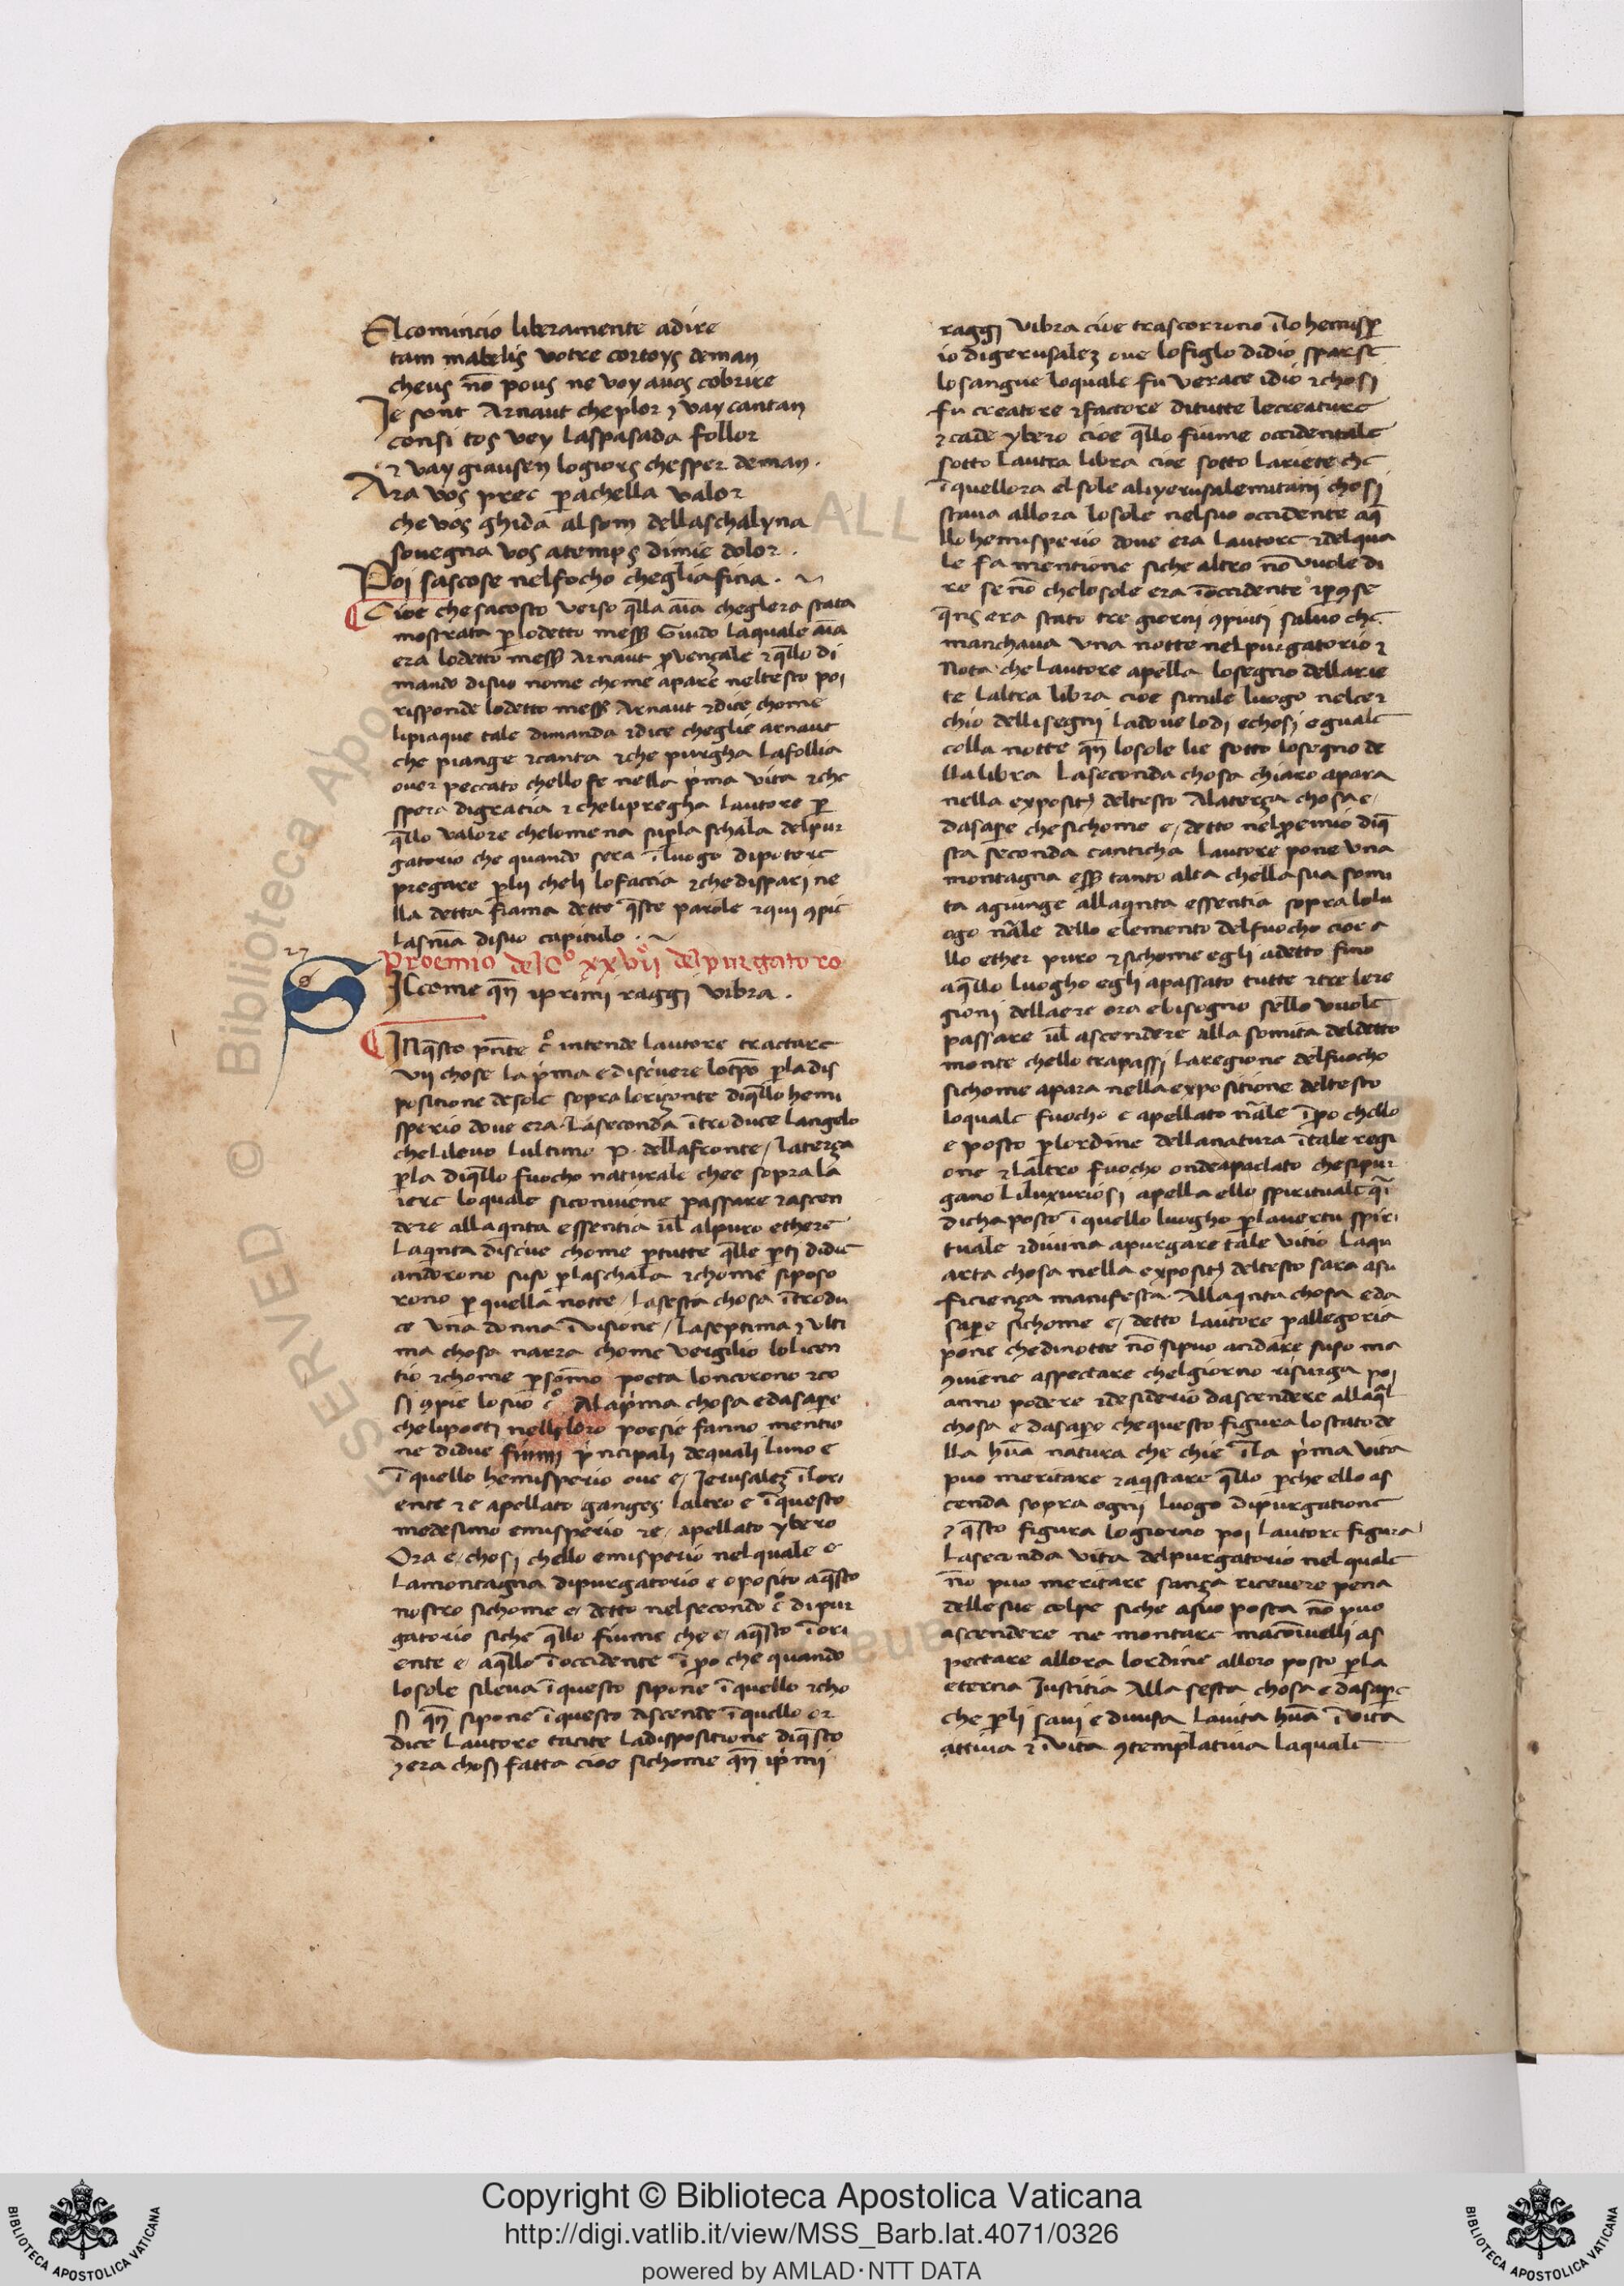 El comincio liberamente adire
tam mabelis votre cortoys deman
cheus nō pous ne voy avos cobrire
Je sont Arnaut che plor ⁊ vay cantan
consi tos vey laspasada follor
⁊ vay giausen logiors chesper deman.
Ara vos prec ꝑachella valor
che vos ghida alsom dellaschalyna
sovegna vos atemps dimie dolor.
Poi sascose nelfocho chegliafina.
Cioe che sacosto verso q̄lla aīa cheglera stata
mostrata ꝑ lodetto mess Guido laquale aīa
era lodetto mess Arnaut ꝓvenzale ⁊ q̄llo di
mando disuo nome chome apare neltesto poi
risponde lodetto mess Arnaut ⁊ dice chome
lipiaque tale dimanda ⁊ dice cheglie arnaut
che piange ⁊ canta ⁊ che purgha lafollia
over peccato chello fe nella p̄ma vita ⁊ che
spera digracia ⁊ chelipregha lautore ꝑ
q̄llo valore chelomena supla schala delpur
gatorio che quando sera ī luogo dipotere
pregare ꝑ lui cheli lofaccia ⁊ che dispari ne
lla detta fiama dette q̄ste parole ⁊ qui ꝯpie
lasūa disuo capitulo.
27
Proemio del Cº xxvij del purgatoro
SIlcome qn̄ iprimi raggi vibra.
INq̄sto pn̄te cº intende lautore tractare
vij chose la p̄ma e discrivere lotp̄o ꝑ la dis
positione desole sopra lorizonte diq̄llo hemi
sperio dove era. laseconda ītroduce langelo
chelilevo lultimo P. dellafronte / laterza
ꝑla diq̄llo fuocho naturale chee sopra la
iere loquale siconviene passare ⁊ ascen
dere alla q̄nta essentia ūl alpuro ethere
Laq̄nta discive chome ꝑ tutte q̄lle ꝑti didie
andorono suso ꝑ laschala ⁊ chome siposo
rono ꝑ quella notte / lasesta chosa ītrodu
ce una donna ī visione / laseptima ⁊ ulti
ma chosa narra chome vergilio lolicen
tio ⁊ chome ꝑ somo poeta loncorono ⁊ co
si ꝯpie losuo cº Alap̄ma chosa edasape
chelipoeti nelleloro poesie fanno mentio
ne didue fiumi p̄ncipali dequali luno e
ī quello hemisperio ove e / Ierusalez ī lori
ente ⁊ e apellato ganges laltro e ī questo
medesimo emisperio ⁊ e / apellato ybero
Ora e / chosi chello emisperio nel quale e
lamontagna dipurgatorio e oposito aq̄sto
nostro sichome e / detto nelsecondo cº di pur
gatorio siche q̄llo fiume che e / aq̄sto ī ori
ente e / aq̄llo ī occidente ī ꝑo che quando
losole sileva ī questo sipone ī quello ⁊ cho
si qn̄ sipone ī questo ascende ī quello or
dice lautore tacite ladispositione diq̄sto
⁊ era chosi fatta cioe sichome qn̄ ip̄mi
raggi vibra cioe trascorrono ī lo hemisꝑ
io digerusalez ove lofiglo didio sparse
losangue loquale fu verace idio ⁊ chosi
fu creatore ⁊ factore ditutte lecreature
⁊ cade ybero cioe q̄llo fiume occidentale
sotto lautra libra cioe sotto lariete che
ī quellora el sole aliyerusalemitani chosi
stava allora losole nelsuo occidente aq̄
llo hemisperio dove era lautore ⁊ delqua
le fa mentione siche altro nō vuole di
re se nō chelosole era ī occidente ⁊ ꝑꝯse
q̄ns era stato tre giorni ꝯpiuti salvo che
manchava una notte nel purgatorio ⁊
Nota che lautore apella losegno dellarie
te laltra libra cioe simile luogo nelcer
chio dellisegni ladove lodi echosi eguale
colla notte qn̄ losole lie sotto losegno de
llalibra Laseconda chosa chiaro apara
nella expositō deltesto Alaterza chosa e /
dasape che sichome e / detto nelꝓemio diq̄
sta seconda canticha lautore pone una
montagna ess tanto alta chella sua somi
ta agiunge allaq̄nta essentia sopra lolu
ogo nāle dello elemento delfuocho cioe a
llo ether puro ⁊ sichome egli adetto fino
aq̄llo luogho egli apassato tutte ⁊ tre lere
gioni dellaere ora ebisogno sello vuole
passare ūl ascendere alla somita deldetto
monte chello trapassi laregione delfuocho
sichome apara nella expositione deltesto
loquale fuocho e apellato nāle ī ꝑo chello
e posto ꝑ lordine dellanatura ī tale regi
one ⁊ laltro fuocho ondeaparlato chesipur
gano liluxuriosi apella ello spirituale q̄i
dicha posto ī quello luogho ꝑ lavertu spiri
tuale ⁊ divina apurgare tale vitio Laqu
arta chosa nella expositō deltesto sara asu
ficienza manifesta. Allaq̄nta chosa eda
sape sichome e / detto lautore ꝑ allegoria
pone chedinotte nō sipuo andare suso ma
ꝯviene aspectare chelgiorno risurga poi
anno podere ⁊ desiderio dascendere allaq̄l
chosa e dasape che questo figura lo stato de
lla hūa natura che chie ī la p̄ma vita
puo meritare ⁊ aq̄stare q̄llo ꝑche ello as
cenda sopra ogni luogo dipurgatione
⁊ q̄sto figura logiorno poi lautore figura
laseconda vita delpurgatorio nel quale
nō puo meritare sanza ricevere pena
dellesue colpe siche asuo posta nō puo
ascendere ne montare macōvielli as
pectare allora lordine alloro posto ꝑla
eterna Justitia Alla sesta chosa e dasape
che ꝑli savi e divisa lavita hūa ī vita
attiva ⁊ ī vita ꝯtemplativa laquale
Copyright © Biblioteca Apostolica Vaticana
http://digi.vatlib.it/view/MSS_Barb.lat.4071/0326
powered by AMLAD·NTT DATA
BIBLIOTECA APOSTOLICA VATICANA
BIBLIOTECA APOSTOLICA VATICANA